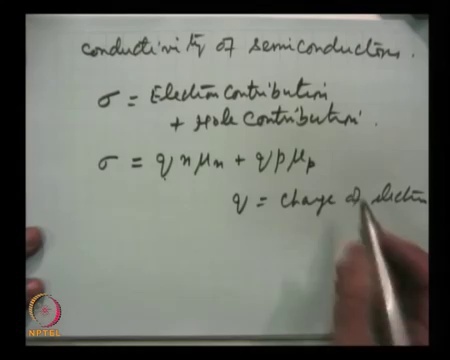 conductivity of semiconductors.
σ = Electron contribution
+ Hole contribution.
σ = q n μn + q p μp
q = charge of electron
NPTEL